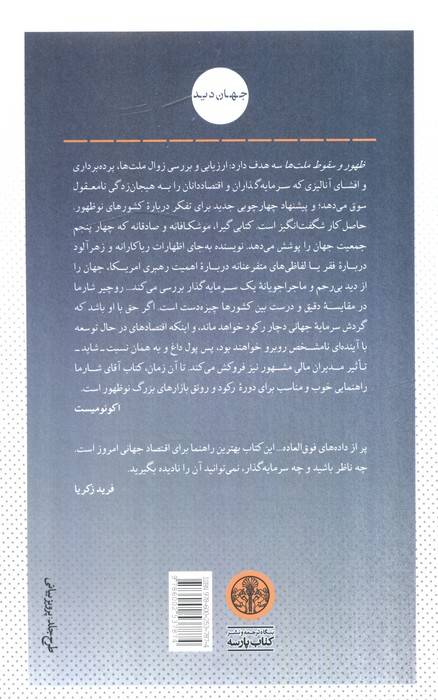 جهان دید
ظهور و سقوط ملت‌ها سه هدف دارد: ارزیابی و بررسی زوال ملت‌ها، پرده‌برداری
و افشای آنالیزی که سرمایه‌گذاران و اقتصاددانان را به هیجان‌زدگی نامعقول
سوق می‌دهد؛ و پیشنهاد چهارچوبی جدید برای تفکر دربارهٔ کشورهای نوظهور.
حاصل کار شگفت‌انگیز است. کتابی گیرا، موشکافانه و صادقانه که چهار پنجم
جمعیت جهان را پوشش می‌دهد. نویسنده به‌جای اظهارات ریاکارانه و زهرآلود
دربارهٔ فقر یا لفاظی‌های متفرعنانه دربارهٔ اهمیت رهبری امریکا، جهان را
از دید بی‌رحم و ماجراجویانهٔ یک سرمایه‌گذار بررسی می‌کند... روچیر شارما
در مقایسهٔ دقیق و درست بین کشورها چیره‌دست است. اگر حق با او باشد که
گردش سرمایهٔ جهانی دچار رکود خواهد ماند، و اینکه اقتصادهای در حال توسعه
با آینده‌ای نامشخص روبرو خواهند بود، پس پول داغ و به همان نسبت ـ شاید ـ
تأثیر مدیران مالی مشهور نیز فروکش می‌کند. تا آن زمان، کتاب آقای شارما
راهنمایی خوب و مناسب برای دورهٔ رکود و رونق بازارهای بزرگ نوظهور است.
اکونومیست
پر از داده‌های فوق‌العاده... این کتاب بهترین راهنما برای اقتصاد جهانی امروز است.
چه ناظر باشید و چه سرمایه‌گذار، نمی‌توانید آن را نادیده بگیرید.
فرید زکریا
طرح جلد: پرویز بیانی
بنگاه ترجمه و نشر
کتاب پارسه